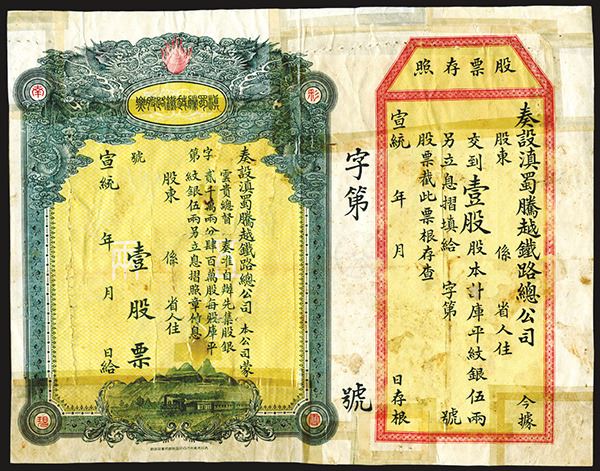 股票存照
奏設滇蜀騰越鐵路總公司 今據
股東 係 省人住
交到壹股股本計庫平紋銀伍兩
另立息摺填給 字第 號
股票截此票根存查
宣統 年 月 日存根
字第 號
滇蜀騰越鐵路股票
奏設滇蜀騰越鐵路總公司 本公司蒙
雲貴總督 奏准自辦先集股銀
字 貳千萬兩分肆百萬股每股庫平
第 紋銀伍兩另立息摺照章付息
股東 係 省人住
號 壹股票
宣統 年 月 日給